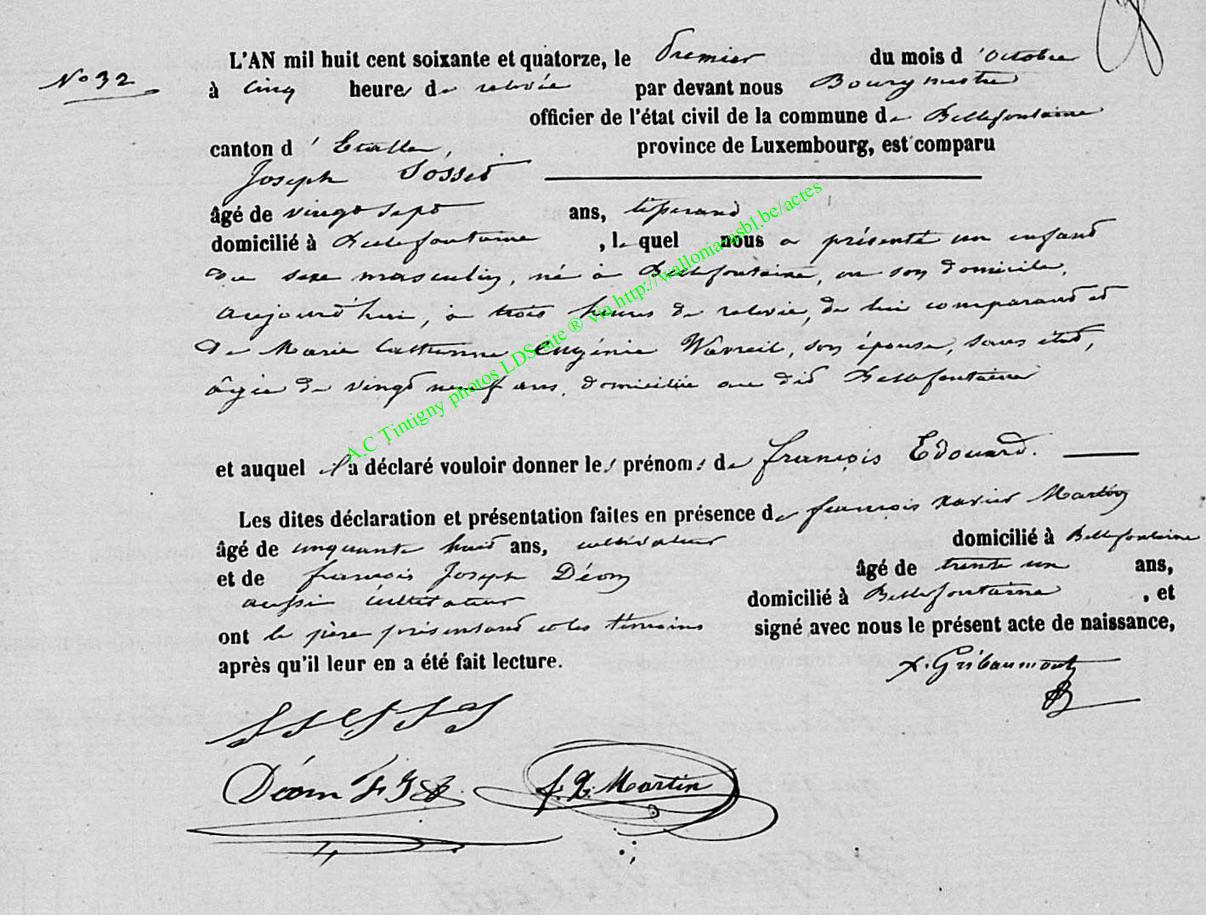 N° 32
L'AN mil huit cent soixante et quatorze, le Premier du mois d'octobre
à cinq heures de relevée par devant nous Bourgmestre
officier de l'état civil de la commune de Bellefontaine
canton d'Etalle, province de Luxembourg, est comparu
Joseph Sosset
âgé de vingt sept ans, tisserand
domicilié à Bellefontaine, lequel nous a présenté un enfant
du sexe masculin, né à Bellefontaine, en son domicile,
aujourd'hui, à trois heures de relevée, de lui comparant et
de Marie Catherine Eugénie Wavreil, son épouse, sans état,
âgée de vingt neuf ans, domiciliée au dit Bellefontaine
et auquel il a déclaré vouloir donner les prénoms de françois Edouard.
Les dites déclaration et présentation faites en présence de françois xavier Martin
âgé de cinquante huit ans, cultivateur domicilié à Bellefontaine
et de françois Joseph Déom âgé de trente un ans,
aussi cultivateur domicilié à Bellefontaine, et
ont le père présentant et les témoins signé avec nous le présent acte de naissance,
après qu'il leur en a été fait lecture.
x. Gribaumont
Déom F J f. x. Martin
A.C Tintigny photos LDS suite ® via http://wallonia-asbl.be/actes